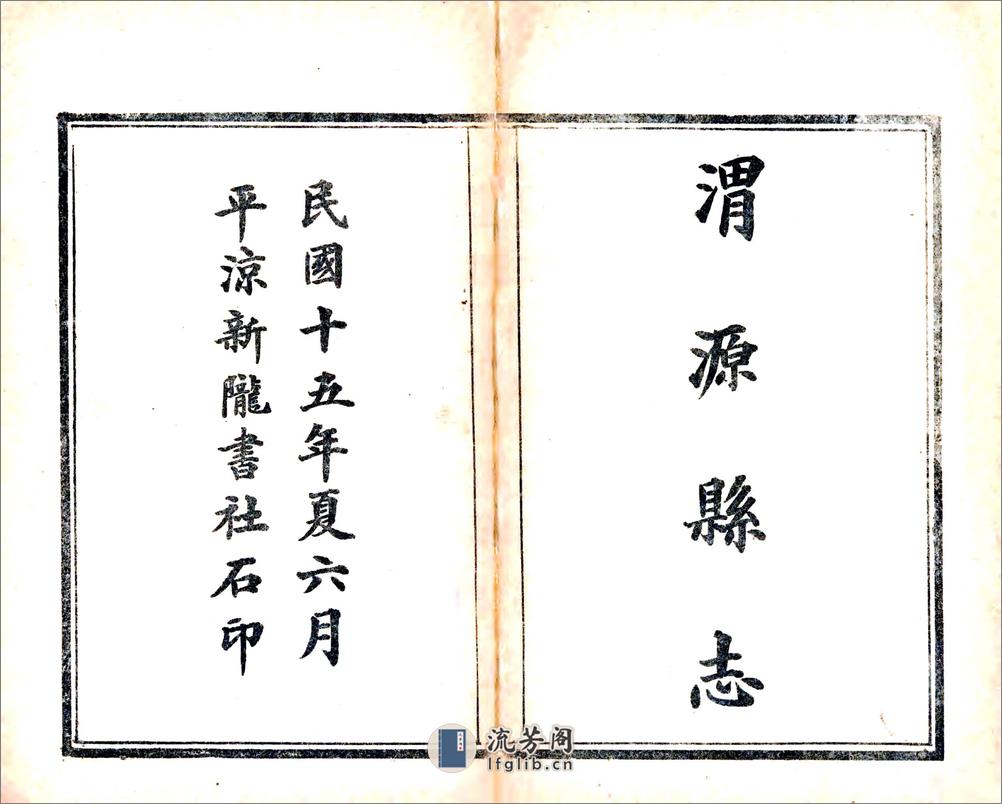 渭源縣志
民國十五年夏六月
平涼新隴書社石印
流芳阁
lfglib.cn